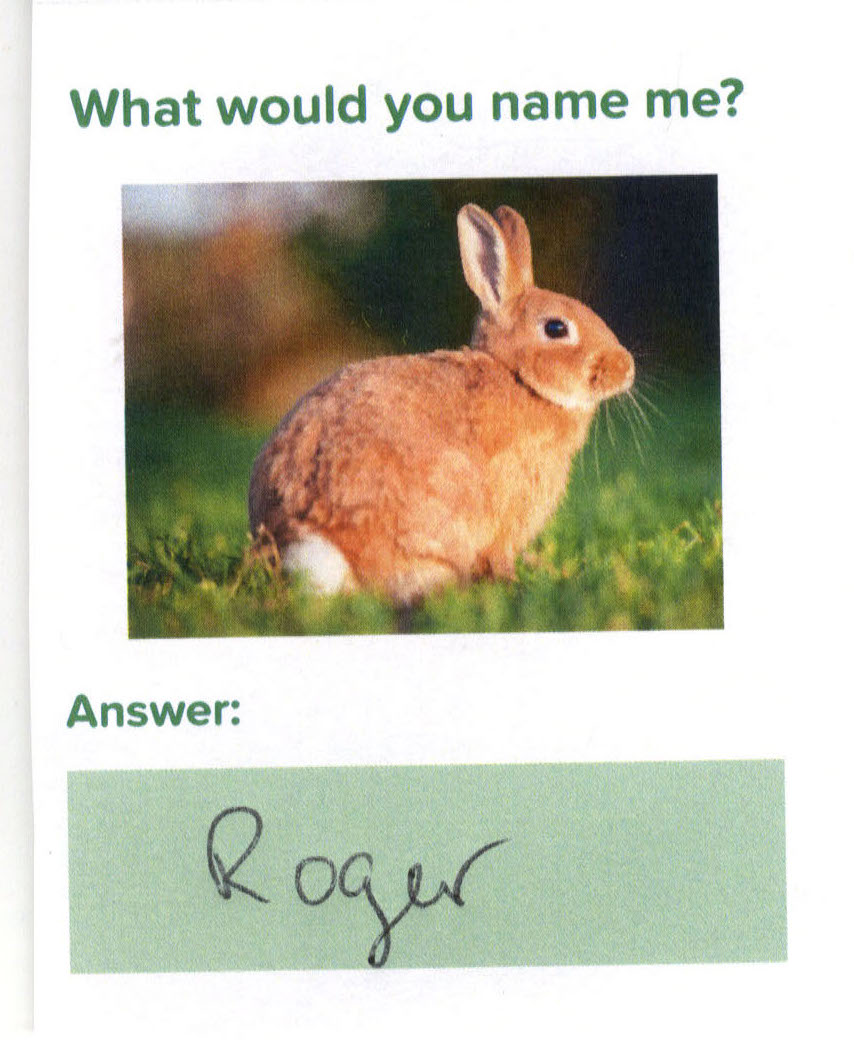 What would you name me?
Answer:
Roger